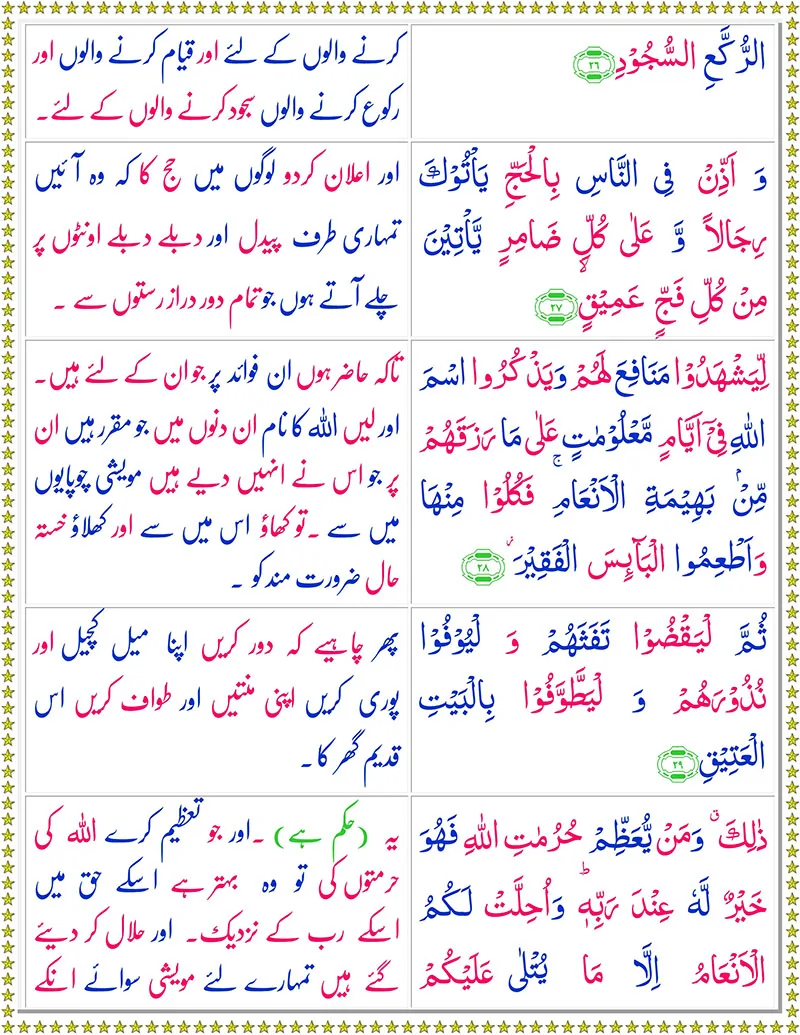 الرُّكَّعِ السُّجُوْدِ ﴿۲۶﴾
کرنے والوں کے لئے اور قیام کرنے والوں اور
رکوع کرنے والوں سجود کرنے والوں کے لئے۔
وَ اَذِّنْ فِی النَّاسِ بِالْحَجِّ یَاْتُوْكَ
رِجَالاً وَّ عَلٰی كُلِّ ضَامِرٍ یَّاْتِیْنَ
مِنْ كُلِّ فَجٍّ عَمِیْقٍ ﴿۲۷﴾
اور اعلان کردو لوگوں میں حج کا کہ وہ آئیں
تمہاری طرف پیدل اور دبلے دبلے اونٹوں پر
چلے آتے ہوں جو تمام دور دراز رستوں سے ۔
لِّیَشْهَدُوْا مَنَافِعَ لَهُمْ وَیَذْكُرُوا اسْمَ
اللهِ فِیْۤ اَیَّامٍ مَّعْلُوْمٰتٍ عَلٰی مَا رَزَقَهُمْ
مِّنْۢ بَهِیْمَةِ الْاَنْعَامِ ۚ فَكُلُوْا مِنْهَا
وَاَطْعِمُوا الْبَآئِسَ الْفَقِیْرَ ؗ ﴿۲۸﴾
تاکہ حاضر ہوں ان فوائد پر جو ان کے لئے ہیں۔
اور لیں اللہ کا نام ان دنوں میں جو مقرر ہیں ان
پر جو اس نے انہیں دیے ہیں مویشی چوپایوں
میں سے ۔ تو کھاؤ اس میں سے اور کھلاؤ خستہ
حال ضرورت مند کو ۔
ثُمَّ لْیَقْضُوْا تَفَثَهُمْ وَ لْیُوْفُوْا
نُذُوْرَهُمْ وَ لْیَطَّوَّفُوْا بِالْبَیْتِ
الْعَتِیْقِ ﴿۲۹﴾
پھر چاہیے کہ دور کریں اپنا میل کچیل اور
پوری کریں اپنی منتیں اور طواف کریں اس
قدیم گھر کا ۔
ذٰلِكَ ۗ وَمَنْ یُّعَظِّمْ حُرُمٰتِ اللهِ فَهُوَ
خَیْرٌ لَّهٗ عِنْدَ رَبِّهٖ ؕ وَاُحِلَّتْ لَكُمُ
الْاَنْعَامُ اِلَّا مَا یُتْلٰی عَلَیْكُمْ
یہ (حکم ہے) ۔ اور جو تعظیم کرے اللہ کی
حرمتوں کی تو وہ بہتر ہے اسکے حق میں
اسکے رب کے نزدیک۔ اور حلال کر دیئے
گئے ہیں تمہارے لئے مویشی سوائے انکے